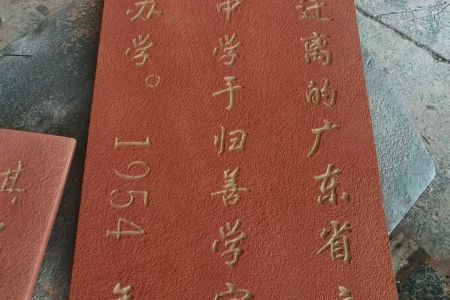 迁离的广东省
中学于归善学宫
办学。1954年
其